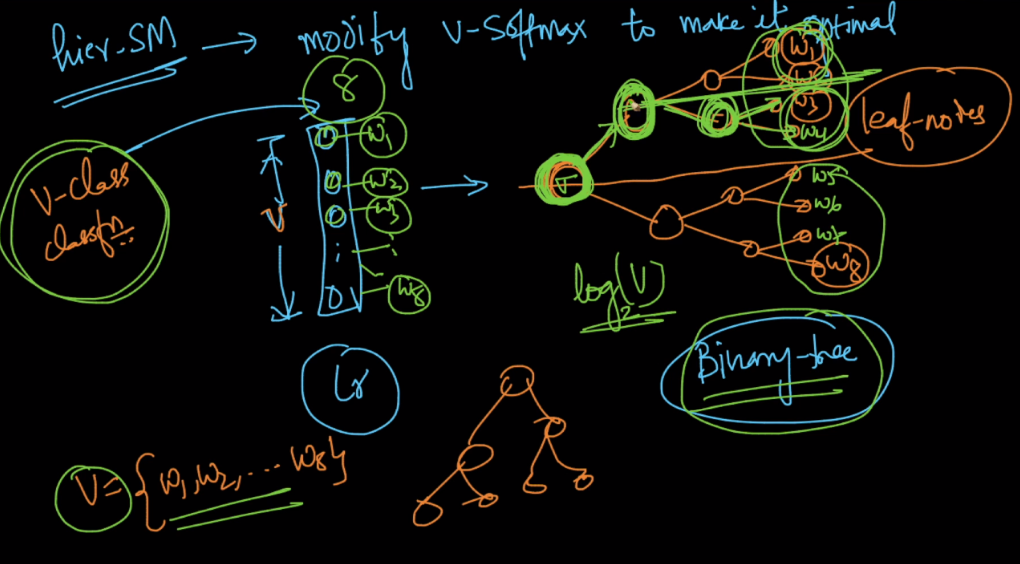 hier-SM → modify V-Softmax to make it optimal
8
V-class
classfn
V
w1
w2
w3
⋮
w8
w1
w3
w4
w5
w6
w7
w8
leaf-nodes
log2(V)
Binary-tree
V = {w1, w2, ... w8}